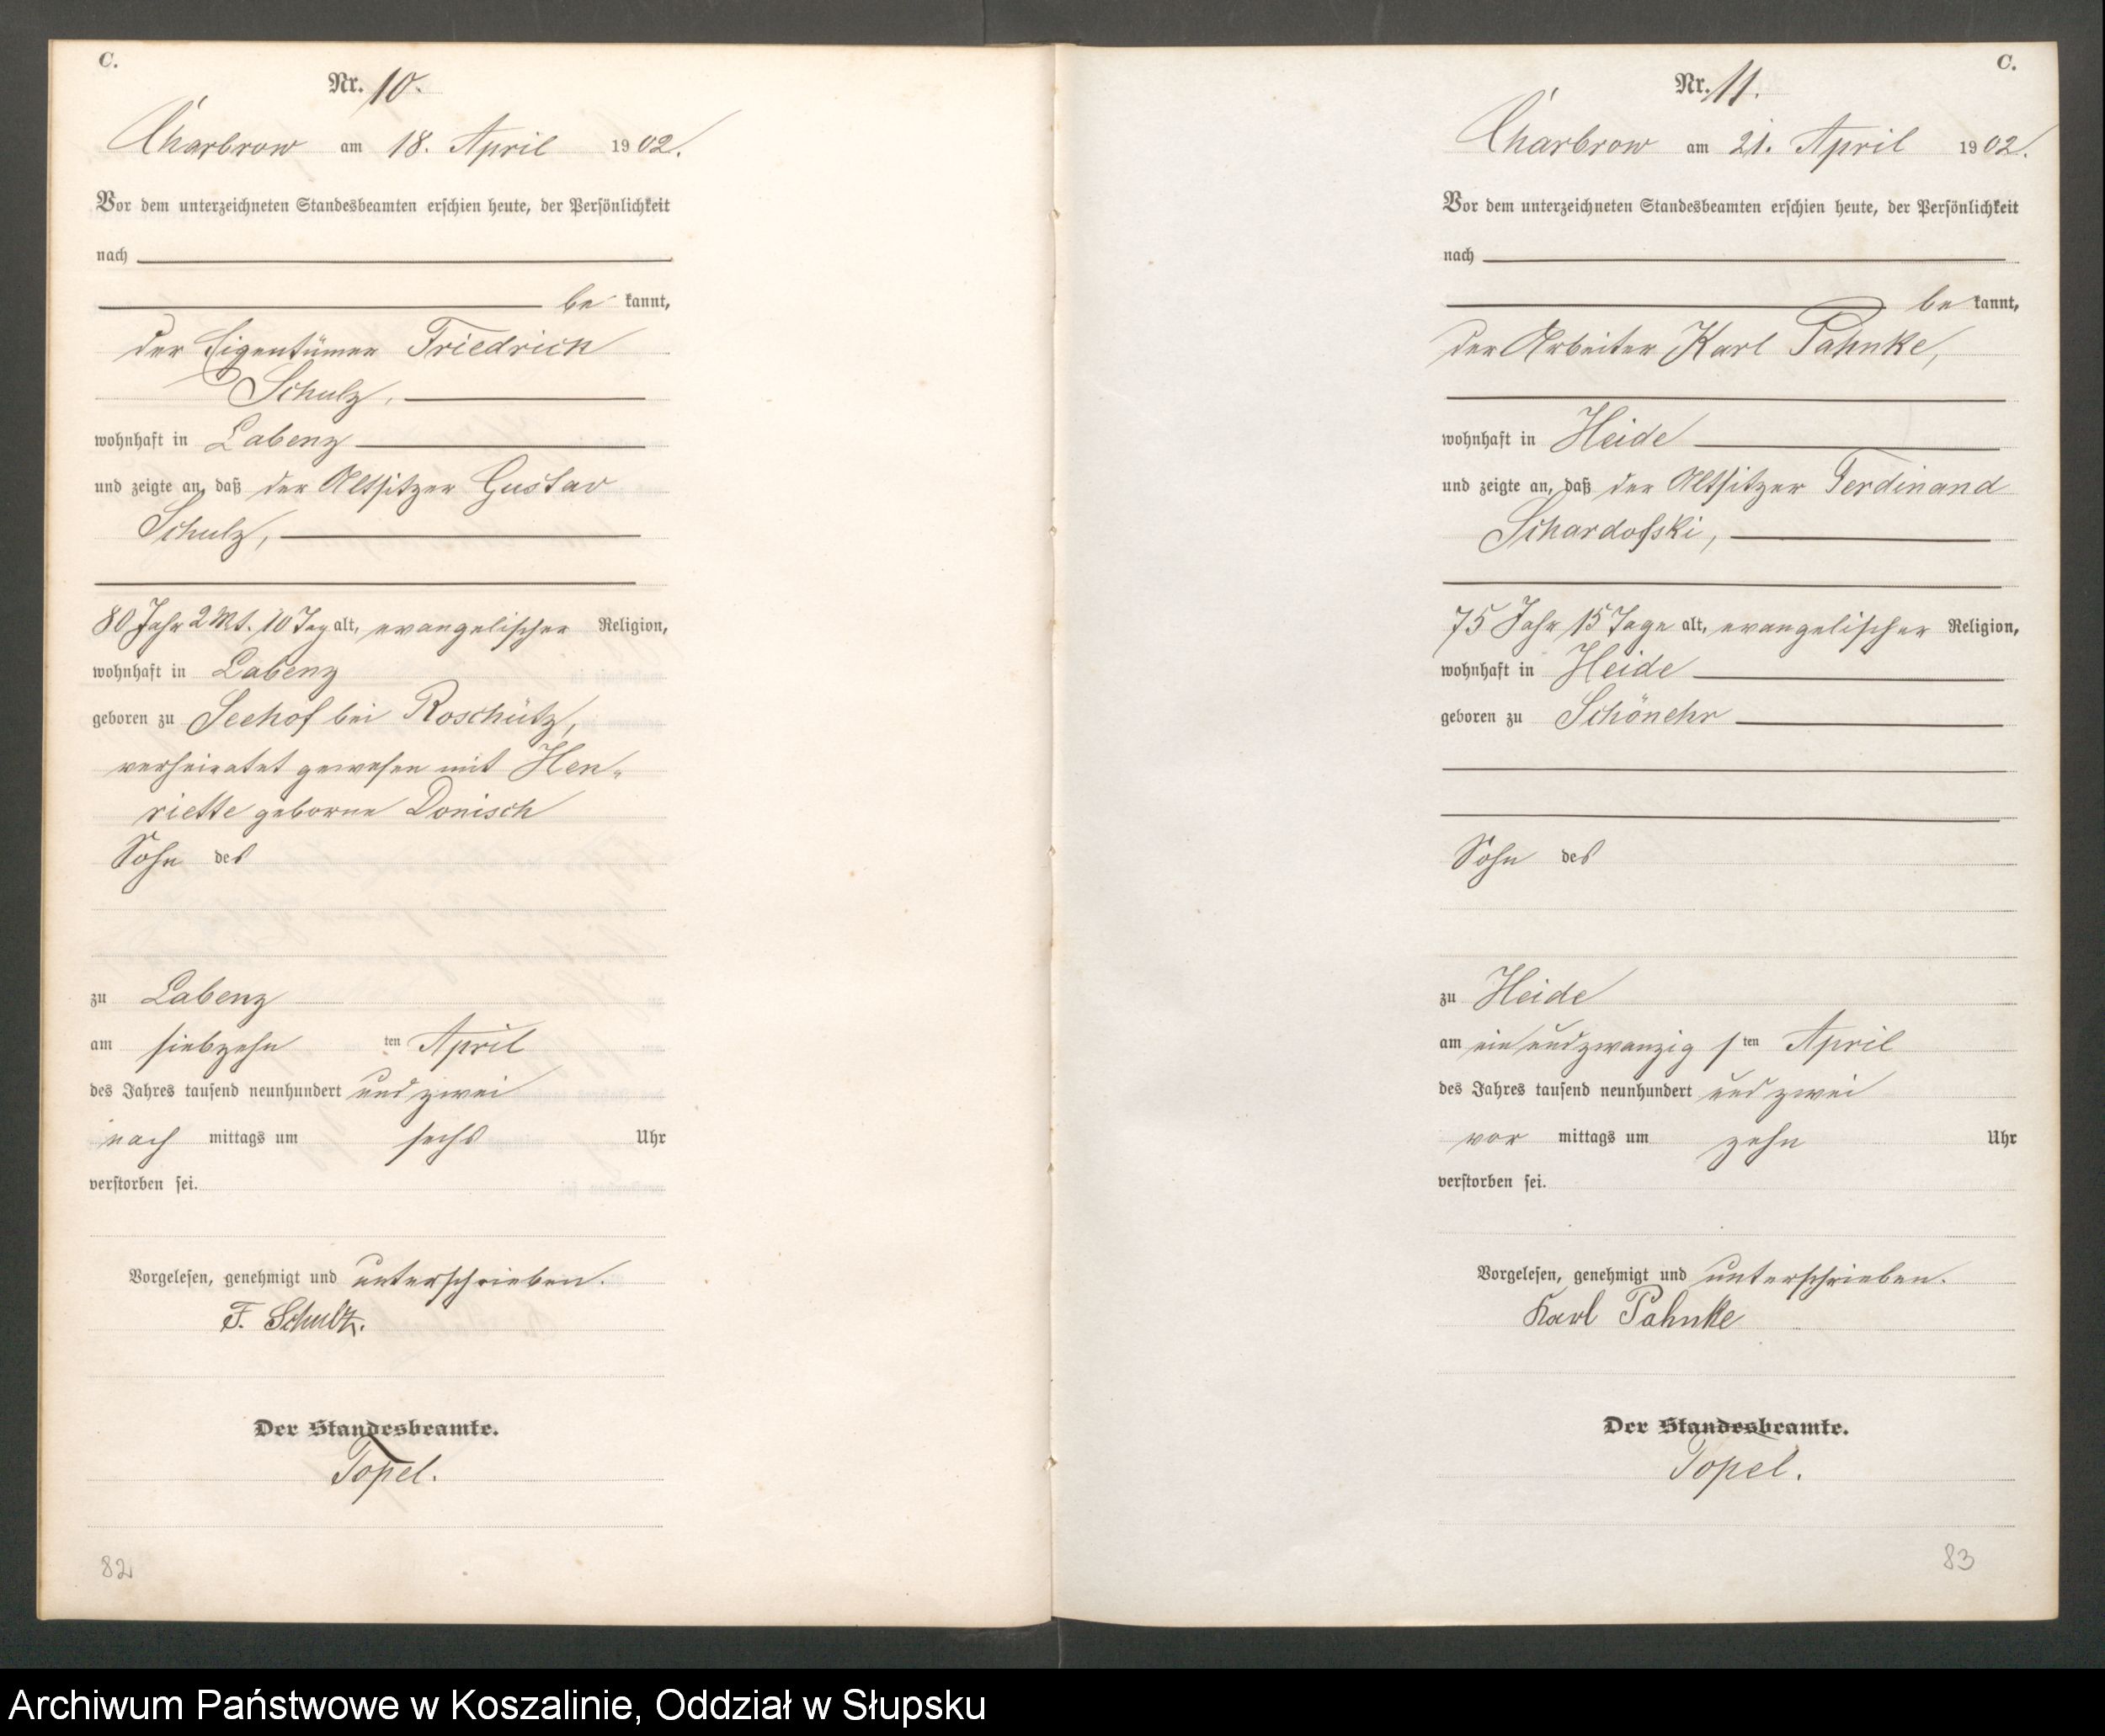 C.
Nr. 10.
Charbrow am 18. April 1902.
Vor dem unterzeichneten Standesbeamten erschien heute, der Persönlichkeit
nach
be kannt,
der Eigentümer Friedrich
Schulz,
wohnhaft in Labenz
und zeigte an, daß der Altsitzer Gustav
Schulz,
80 Jahr 2 Mt. 10 Tag alt, evangelischer Religion,
wohnhaft in Labenz
geboren zu Seehof bei Roschütz,
verheiratet gewesen mit Hen-
riette geborne Donisch
Sohn des
zu Labenz
am siebzehn ten April
des Jahres tausend neunhundert und zwei
nach mittags um sechs Uhr
verstorben sei.
Vorgelesen, genehmigt und unterschrieben.
F. Schultz.
Der Standesbeamte.
Topel.
82
C.
Nr. 11.
Charbrow am 21. April 1902.
Vor dem unterzeichneten Standesbeamten erschien heute, der Persönlichkeit
nach
be kannt,
der Arbeiter Karl Pahnke,
wohnhaft in Heide
und zeigte an, daß der Altsitzer Ferdinand
Schardofski,
75 Jahr 15 Tage alt, evangelischer Religion,
wohnhaft in Heide
geboren zu Schönehr
Sohn des
zu Heide
am ein und zwanzig sten April
des Jahres tausend neunhundert und zwei
vor mittags um zehn Uhr
verstorben sei.
Vorgelesen, genehmigt und unterschrieben.
Karl Pahnke
Der Standesbeamte.
Topel.
83
Archiwum Państwowe w Koszalinie, Oddział w Słupsku